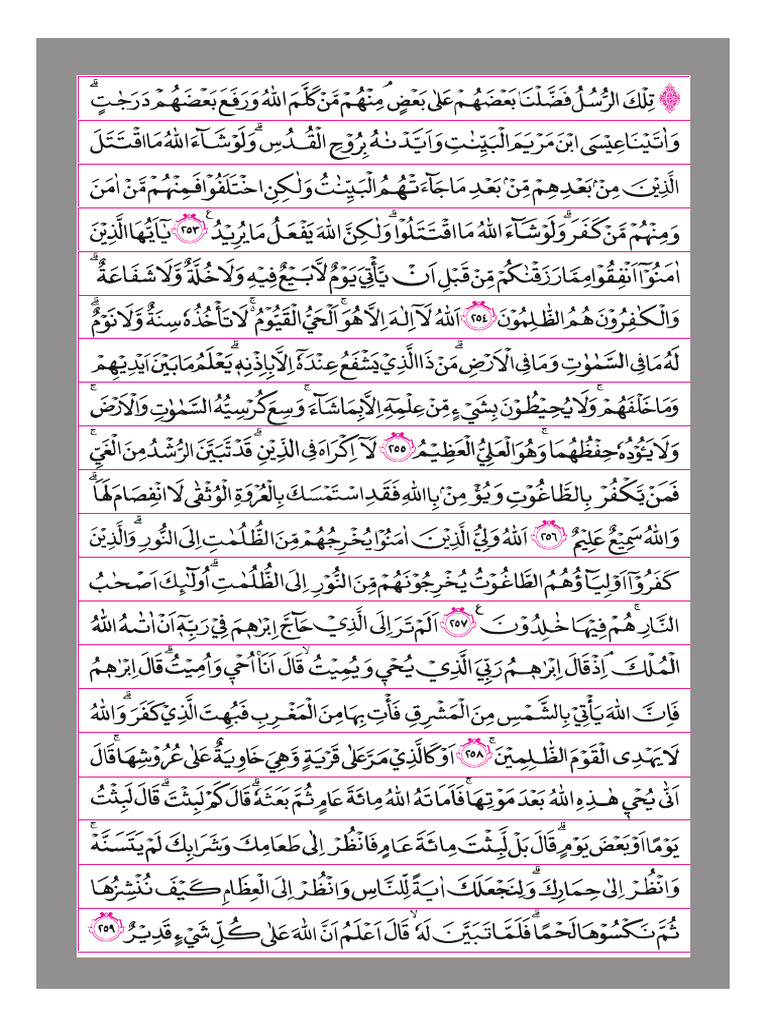 تِلۡكَ الرُّسُلُ فَضَّلۡنَا بَعۡضَهُمۡ عَلٰى بَعۡضٍ ۘ مِنۡهُمۡ مَّنۡ كَلَّمَ اللّٰهُ وَرَفَعَ بَعۡضَهُمۡ دَرَجٰتٍ ؕ
وَاٰتَيۡنَا عِيۡسَى ابۡنَ مَرۡيَمَ الۡبَيِّنٰتِ وَاَيَّدۡنٰهُ بِرُوۡحِ الۡقُدُسِ ؕ وَلَوۡ شَآءَ اللّٰهُ مَا اقۡتَتَلَ
الَّذِيۡنَ مِنۡۢ بَعۡدِهِمۡ مِّنۡۢ بَعۡدِ مَا جَآءَتۡهُمُ الۡبَيِّنٰتُ وَلٰكِنِ اخۡتَلَفُوۡا فَمِنۡهُمۡ مَّنۡ اٰمَنَ
وَمِنۡهُمۡ مَّنۡ كَفَرَ ؕ وَلَوۡ شَآءَ اللّٰهُ مَا اقۡتَتَلُوۡا ؕ وَلٰكِنَّ اللّٰهَ يَفۡعَلُ مَا يُرِيۡدُ ﴿۲۵۳﴾ يٰۤاَيُّهَا الَّذِيۡنَ
اٰمَنُوۡۤا اَنۡفِقُوۡا مِمَّا رَزَقۡنٰكُمۡ مِّنۡ قَبۡلِ اَنۡ يَّاۡتِيَ يَوۡمٌ لَّا بَيۡعٌ فِيۡهِ وَلَا خُلَّةٌ وَّلَا شَفَاعَةٌ ؕ
وَالۡكٰفِرُوۡنَ هُمُ الظّٰلِمُوۡنَ ﴿۲۵۴﴾ اَللّٰهُ لَاۤ اِلٰهَ اِلَّا هُوَ ۚ اَلۡحَيُّ الۡقَيُّوۡمُ ۚ لَا تَاۡخُذُهٗ سِنَةٌ وَّلَا نَوۡمٌ ؕ
لَهٗ مَا فِي السَّمٰوٰتِ وَمَا فِي الۡاَرۡضِ ؕ مَنۡ ذَا الَّذِيۡ يَشۡفَعُ عِنۡدَهٗۤ اِلَّا بِاِذۡنِهٖ ؕ يَعۡلَمُ مَا بَيۡنَ اَيۡدِيۡهِمۡ
وَمَا خَلۡفَهُمۡ ۚ وَلَا يُحِيۡطُوۡنَ بِشَيۡءٍ مِّنۡ عِلۡمِهٖۤ اِلَّا بِمَا شَآءَ ۚ وَسِعَ كُرۡسِيُّهُ السَّمٰوٰتِ وَالۡاَرۡضَ ۚ
وَلَا يَئُوۡدُهٗ حِفۡظُهُمَا ۚ وَهُوَ الۡعَلِيُّ الۡعَظِيۡمُ ﴿۲۵۵﴾ لَاۤ اِكۡرَاهَ فِي الدِّيۡنِ ۟ؕ قَدۡ تَّبَيَّنَ الرُّشۡدُ مِنَ الۡغَيِّ ۚ
فَمَنۡ يَّكۡفُرۡ بِالطَّاغُوۡتِ وَيُؤۡمِنۡۢ بِاللّٰهِ فَقَدِ اسۡتَمۡسَكَ بِالۡعُرۡوَةِ الۡوُثۡقٰى لَا انۡفِصَامَ لَهَا ؕ
وَاللّٰهُ سَمِيۡعٌ عَلِيۡمٌ ﴿۲۵۶﴾ اَللّٰهُ وَلِيُّ الَّذِيۡنَ اٰمَنُوۡا يُخۡرِجُهُمۡ مِّنَ الظُّلُمٰتِ اِلَى النُّوۡرِ ؕ وَالَّذِيۡنَ
كَفَرُوۡۤا اَوۡلِيٰٓـؤُهُمُ الطَّاغُوۡتُ يُخۡرِجُوۡنَهُمۡ مِّنَ النُّوۡرِ اِلَى الظُّلُمٰتِ ؕ اُولٰٓئِكَ اَصۡحٰبُ
النَّارِ ۚ هُمۡ فِيۡهَا خٰلِدُوۡنَ ﴿۲۵۷﴾ اَلَمۡ تَرَ اِلَى الَّذِيۡ حَآجَّ اِبۡرٰهٖمَ فِيۡ رَبِّهٖۤ اَنۡ اٰتٰىهُ اللّٰهُ
الۡمُلۡكَ ۘ اِذۡ قَالَ اِبۡرٰهٖمُ رَبِّيَ الَّذِيۡ يُحۡيٖ وَيُمِيۡتُ ۙ قَالَ اَنَا اُحۡيٖ وَاُمِيۡتُ ؕ قَالَ اِبۡرٰهٖمُ
فَاِنَّ اللّٰهَ يَاۡتِيۡ بِالشَّمۡسِ مِنَ الۡمَشۡرِقِ فَاۡتِ بِهَا مِنَ الۡمَغۡرِبِ فَبُهِتَ الَّذِيۡ كَفَرَ ؕ وَاللّٰهُ
لَا يَهۡدِي الۡقَوۡمَ الظّٰلِمِيۡنَ ۚ ﴿۲۵۸﴾ اَوۡ كَالَّذِيۡ مَرَّ عَلٰى قَرۡيَةٍ وَّهِيَ خَاوِيَةٌ عَلٰى عُرُوۡشِهَا ۚ قَالَ
اَنّٰى يُحۡيٖ هٰذِهِ اللّٰهُ بَعۡدَ مَوۡتِهَا ۚ فَاَمَاتَهُ اللّٰهُ مِائَةَ عَامٍ ثُمَّ بَعَثَهٗ ؕ قَالَ كَمۡ لَبِثۡتَ ؕ قَالَ لَبِثۡتُ
يَوۡمًا اَوۡ بَعۡضَ يَوۡمٍ ؕ قَالَ بَلۡ لَّبِثۡتَ مِائَةَ عَامٍ فَانۡظُرۡ اِلٰى طَعَامِكَ وَشَرَابِكَ لَمۡ يَتَسَنَّهۡ ۚ
وَانۡظُرۡ اِلٰى حِمَارِكَ ۟ وَلِنَجۡعَلَكَ اٰيَةً لِّلنَّاسِ وَانۡظُرۡ اِلَى الۡعِظَامِ كَيۡفَ نُنۡشِزُهَا
ثُمَّ نَكۡسُوۡهَا لَحۡمًا ؕ فَلَمَّا تَبَيَّنَ لَهٗ ۙ قَالَ اَعۡلَمُ اَنَّ اللّٰهَ عَلٰى كُلِّ شَيۡءٍ قَدِيۡرٌ ﴿۲۵۹﴾